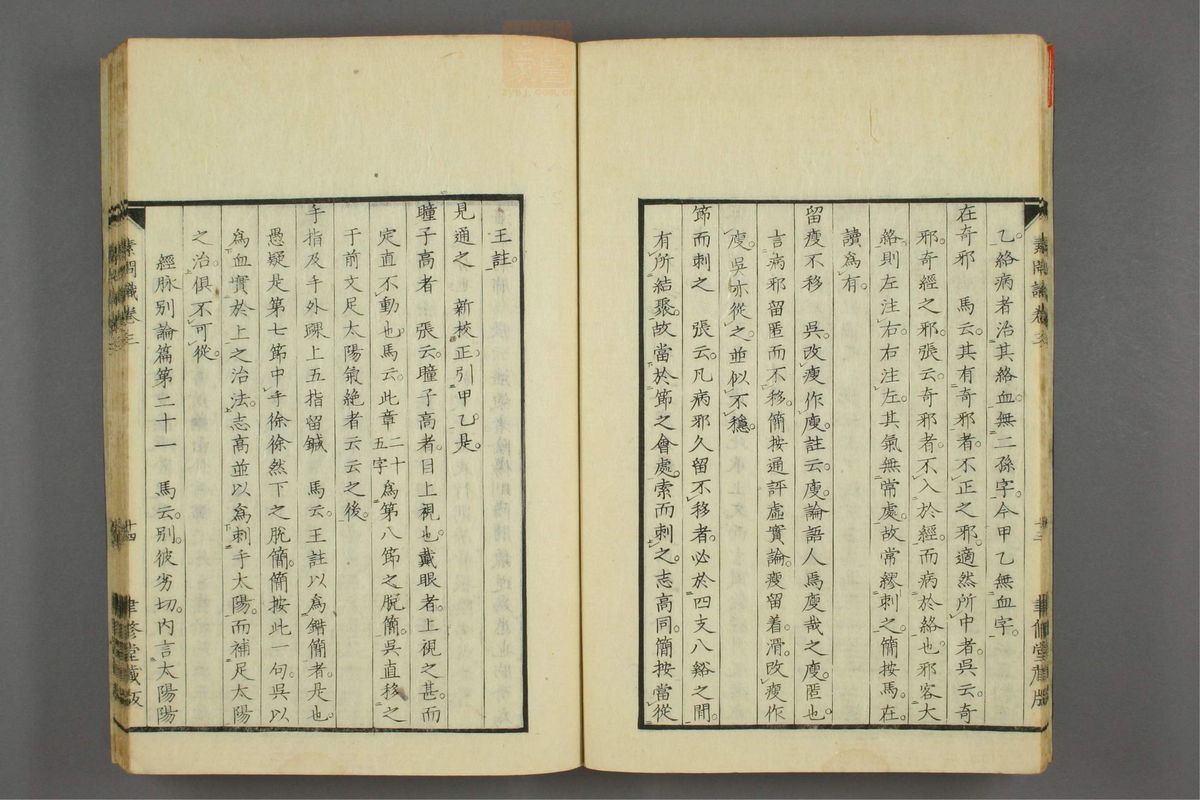 乙絡病者治其絡血無二孫字今甲乙無血字
在奇邪　馬云其有奇邪者不正之邪適然所中者吳云奇
邪奇經之邪張云奇邪者不入於經而病於絡也邪客大
絡則左注右右注左其氣無常處故常繆刺之簡按馬在
讀為有
留瘦不移　吳改瘦作廋註云廋論語人焉廋哉之廋匿也
言病邪留匿而不移簡按通評虛實論瘦留着滑改瘦作
廋吳亦從之並似不穩
節而刺之　張云凡病邪久留不移者必於四支八谿之間
有所結聚故當於節之會處索而刺之志高同簡按當從
素問識卷三
十三
聿修堂藏版
王註
見通之　新校正引甲乙是
瞳子高者　張云瞳子高者目上視也戴眼者上視之甚而
定直不動也馬云此章二十五字為第八節之脫簡吳直移之
于前文足太陽氣絕者云云之後
手指及手外踝上五指留鍼　馬云王註以為錯簡者是也
愚疑是第七節中手徐徐然下之脫簡簡按此一句吳以
為血實於上之治法志高並以為刺手太陽而補足太陽
之治俱不可從
經脉別論篇第二十一　馬云別彼劣切內言太陽陽
素問識卷三
十四
聿修堂藏版